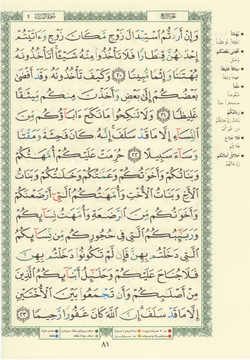 وَإِنْ أَرَدتُّمُ ٱسْتِبْدَالَ زَوْجٍ مَّكَانَ زَوْجٍ وَءَاتَيْتُمْ
إِحْدَىٰهُنَّ قِنطَارًا فَلَا تَأْخُذُوا۟ مِنْهُ شَيْـًٔا أَتَأْخُذُونَهُۥ
بُهْتَـٰنًا وَإِثْمًا مُّبِينًا ٢٠ وَكَيْفَ تَأْخُذُونَهُۥ وَقَدْ أَفْضَىٰ
بَعْضُكُمْ إِلَىٰ بَعْضٍ وَأَخَذْنَ مِنكُم مِّيثَـٰقًا
غَلِيظًا ٢١ وَلَا تَنكِحُوا۟ مَا نَكَحَ ءَابَآؤُكُم مِّنَ
ٱلنِّسَآءِ إِلَّا مَا قَدْ سَلَفَ إِنَّهُۥ كَانَ فَـٰحِشَةً وَمَقْتًا
وَسَآءَ سَبِيلًا ٢٢ حُرِّمَتْ عَلَيْكُمْ أُمَّهَـٰتُكُمْ
وَبَنَاتُكُمْ وَأَخَوَٰتُكُمْ وَعَمَّـٰتُكُمْ وَخَـٰلَـٰتُكُمْ وَبَنَاتُ
ٱلْأَخِ وَبَنَاتُ ٱلْأُخْتِ وَأُمَّهَـٰتُكُمُ ٱلَّـٰتِىٓ أَرْضَعْنَكُمْ
وَأَخَوَٰتُكُم مِّنَ ٱلرَّضَـٰعَةِ وَأُمَّهَـٰتُ نِسَآئِكُمْ
وَرَبَـٰٓئِبُكُمُ ٱلَّـٰتِى فِى حُجُورِكُم مِّن نِّسَآئِكُمُ
ٱلَّـٰتِى دَخَلْتُم بِهِنَّ فَإِن لَّمْ تَكُونُوا۟ دَخَلْتُم بِهِنَّ
فَلَا جُنَاحَ عَلَيْكُمْ وَحَلَـٰٓئِلُ أَبْنَآئِكُمُ ٱلَّذِينَ
مِنْ أَصْلَـٰبِكُمْ وَأَن تَجْمَعُوا۟ بَيْنَ ٱلْأُخْتَيْنِ
إِلَّا مَا قَدْ سَلَفَ إِنَّ ٱللَّهَ كَانَ غَفُورًا رَّحِيمًا ٢٣
٨١